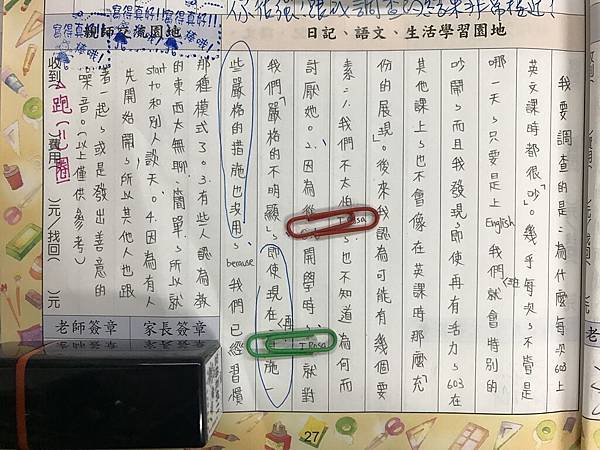 你很強!跟我調查的結果非常接近!
日記、語文、生活學習園地
親師交流園地
寫得真好!!
棒哦!
寫得真好!!
棒哦!
我要調查的是,為什麼每次603上
英文課時都很「吵」。幾乎每次,不管是
哪一天,只要是上English,我們就會特別的
吵鬧,而且我發現,即使再有活力,603在
其他課上,也不會像在英課時那麼「充
份的展現」。後來我認為可能有幾個要
素:1.我們不太怕T.Rosa,也不知道為何而
討厭她。2.因為 開學時,T.Rosa就對
我們「嚴格的不明顯」,即使現在再 施一
些嚴格的措施也沒用,because我們已經習慣
那種模式了。3.有些人認為教
的東西太無聊、簡單,所以就
start to和別人談天。4.因為有人
先開始鬧,所以其他人也跟
著一起,或是發出善意的
噪音。(以上僅供參考)
跑(二)圈
收到 費用( )元/找回( )元
家長簽章
老師簽章
27